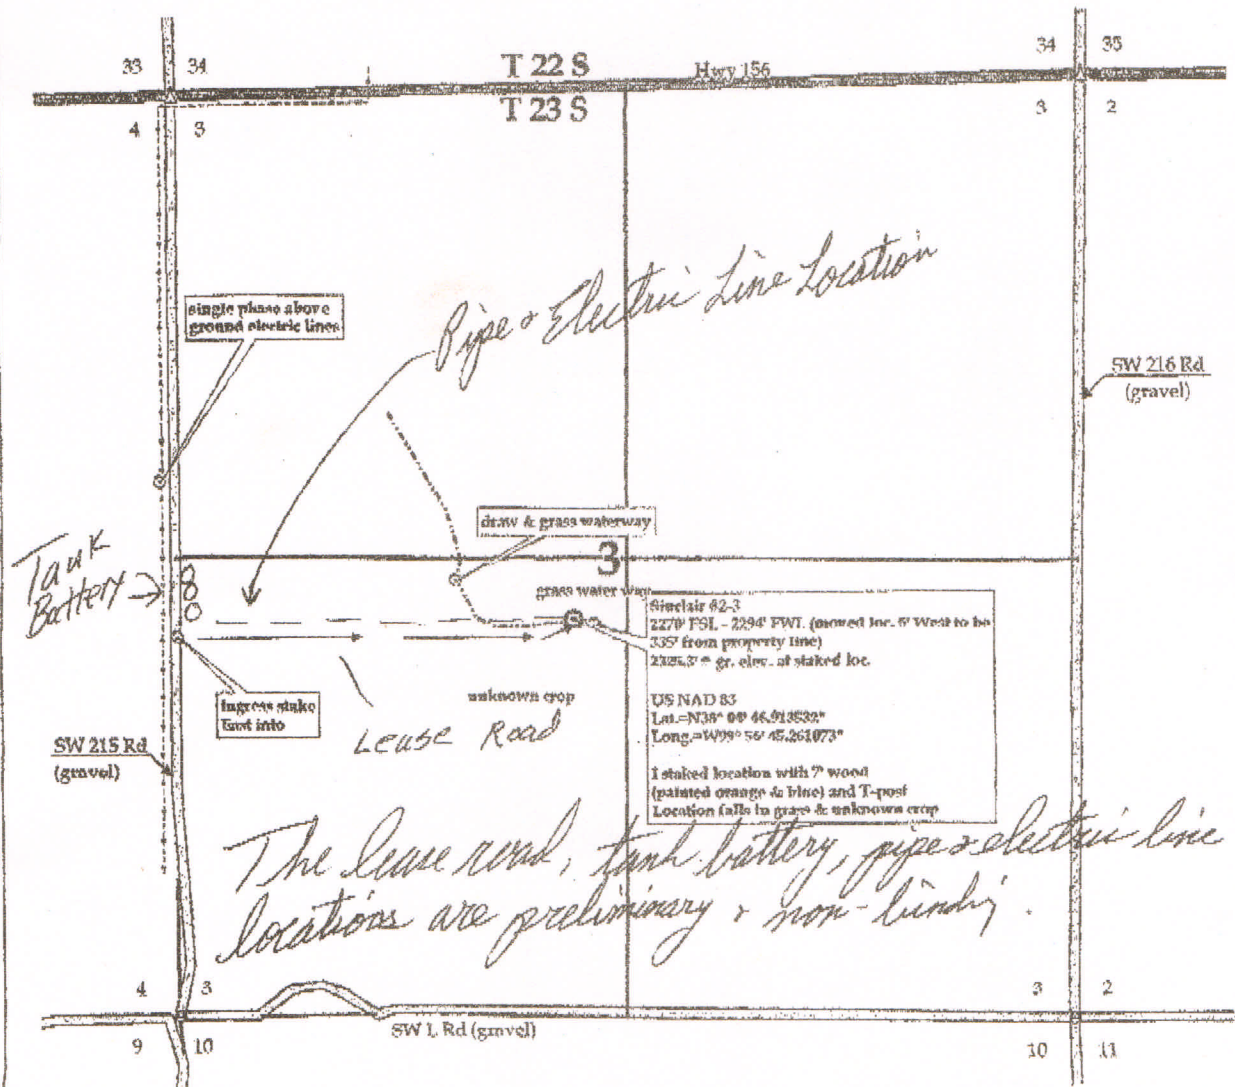 33 34
34 35
T 22 S
Hwy 156
T 23 S
4 3
3 2
Pipe & Electric Line Location
single phase above
ground electric lines
SW 216 Rd
(gravel)
draw & grass waterway
Tank
Battery
3
grass water way
Sinclair #2-3
2270' FSL - 2294' FWL (moved loc. 6' West to be
335' from property line)
gr. elev. at staked loc.
US NAD 83
Long.=W99° 56' 45.261073"
1 staked location with 7' wood
(painted orange & blue) and T-post
Location falls in grass & unknown crop
Ingress stake
East into
unknown crop
Lease Road
SW 215 Rd
(gravel)
The lease road, tank battery, pipe & electric line
locations are preliminary & non-binding.
4 3
3 2
SW L Rd (gravel)
9 10
10 11